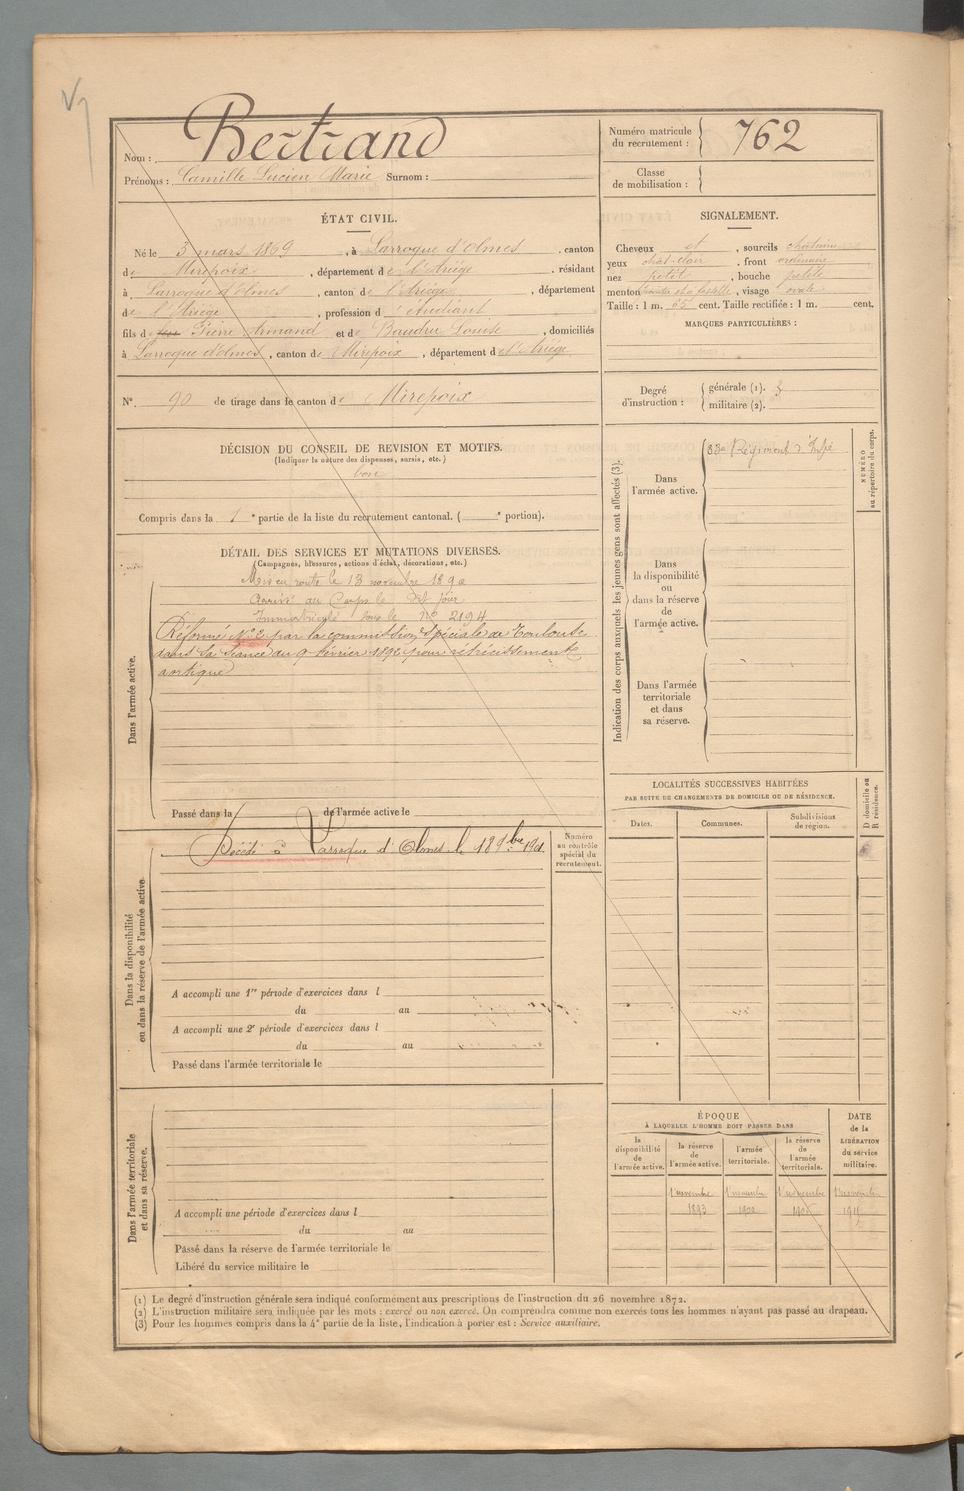 Nom : Bertrand
Prénoms : Camille Lucien Marie Surnom :
Numéro matricule du recrutement : 762
Classe de mobilisation :
ÉTAT CIVIL.
Né le 3 mars 1869, à Larroque d'Olmes, canton
de Mirepoix, département de l'Ariège, résidant
à Larroque d'Olmes, canton de l'Ariège, département
de l'Ariège, profession d'étudiant
fils de Pierre Armand et de Baudru Louise, domiciliés
à Larroque d'olmes, canton de Mirepoix, département de l'Ariège
N°. 90 de tirage dans le canton de Mirepoix
SIGNALEMENT.
Cheveux et, sourcils châtains
yeux chât-clair, front ordinaire
nez petit, bouche petite
menton, visage ovale
Taille : 1 m. 65 cent. Taille rectifiée : 1 m. cent.
MARQUES PARTICULIÈRES :
Degré d'instruction :
générale (1). 3
militaire (2).
DÉCISION DU CONSEIL DE REVISION ET MOTIFS.
(Indiquer la nature des dispenses, sursis, etc.)
bon
Compris dans la 1e partie de la liste du recrutement cantonal. ( e portion).
DÉTAIL DES SERVICES ET MUTATIONS DIVERSES.
(Campagnes, blessures, actions d'éclat, décorations, etc.)
Dans l'armée active.
Mis en route le 13 novembre 1890
Arrivé au Corps le dit jour
Immatriculé sous le N° 2194
Réformé N° 2 par la commission spéciale de Toulouse
dans la séance du 9 février 1892 pour rétrécissement
aortique
Passé dans la de l'armée active le
Dans la disponibilité ou dans la réserve de l'armée active.
Décédé à Larroque d'Olmes le 18 9bre 1901
Numéro au contrôle spécial du recrutement.
A accompli une 1re période d'exercices dans l
du au
A accompli une 2e période d'exercices dans l
du au
Passé dans l'armée territoriale le
Dans l'armée territoriale et dans sa réserve.
A accompli une période d'exercices dans l
du au
Passé dans la réserve de l'armée territoriale le
Libéré du service militaire le
Indication des corps auxquels les jeunes gens sont affectés (3).
NUMÉRO au répertoire du corps.
Dans l'armée active.
83e Régiment d'Infie
Dans la disponibilité ou dans la réserve de l'armée active.
Dans l'armée territoriale et dans sa réserve.
LOCALITÉS SUCCESSIVES HABITÉES
PAR SUITE DE CHANGEMENTS DE DOMICILE OU DE RÉSIDENCE.
D domicile ou R résidence.
Dates. Communes. Subdivisions de région.
ÉPOQUE
À LAQUELLE L'HOMME DOIT PASSER DANS
DATE de la LIBÉRATION du service militaire.
la disponibilité de l'armée active.
la réserve de l'armée active.
l'armée territoriale.
la réserve de l'armée territoriale.
1 novembre 1 novembre 1 novembre 1 novembre
1893 1900
(1) Le degré d'instruction générale sera indiqué conformément aux prescriptions de l'instruction du 26 novembre 1872.
(2) L'instruction militaire sera indiquée par les mots : exercé ou non exercé. On comprendra comme non exercés tous les hommes n'ayant pas passé au drapeau.
(3) Pour les hommes compris dans la 4e partie de la liste, l'indication à porter est : Service auxiliaire.